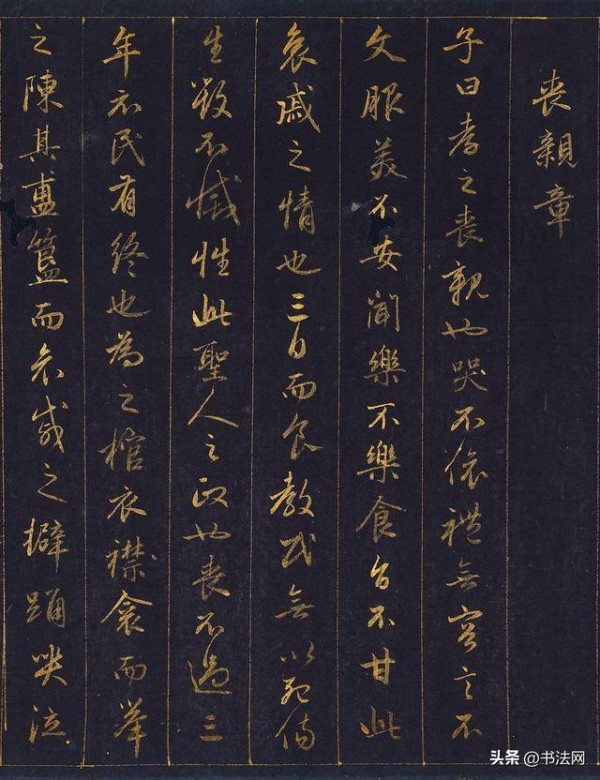 喪親章
子曰孝之喪親也哭不偯禮無容言不
文服美不安聞樂不樂食旨不甘此
哀戚之情也三日而食教民無以死傷
生毀不滅性此聖人之政也喪不過三
年示民有終也為之棺衣襟衾而舉
之陳其盙簋而哀戚之擗踊哭泣
头条 @书法网